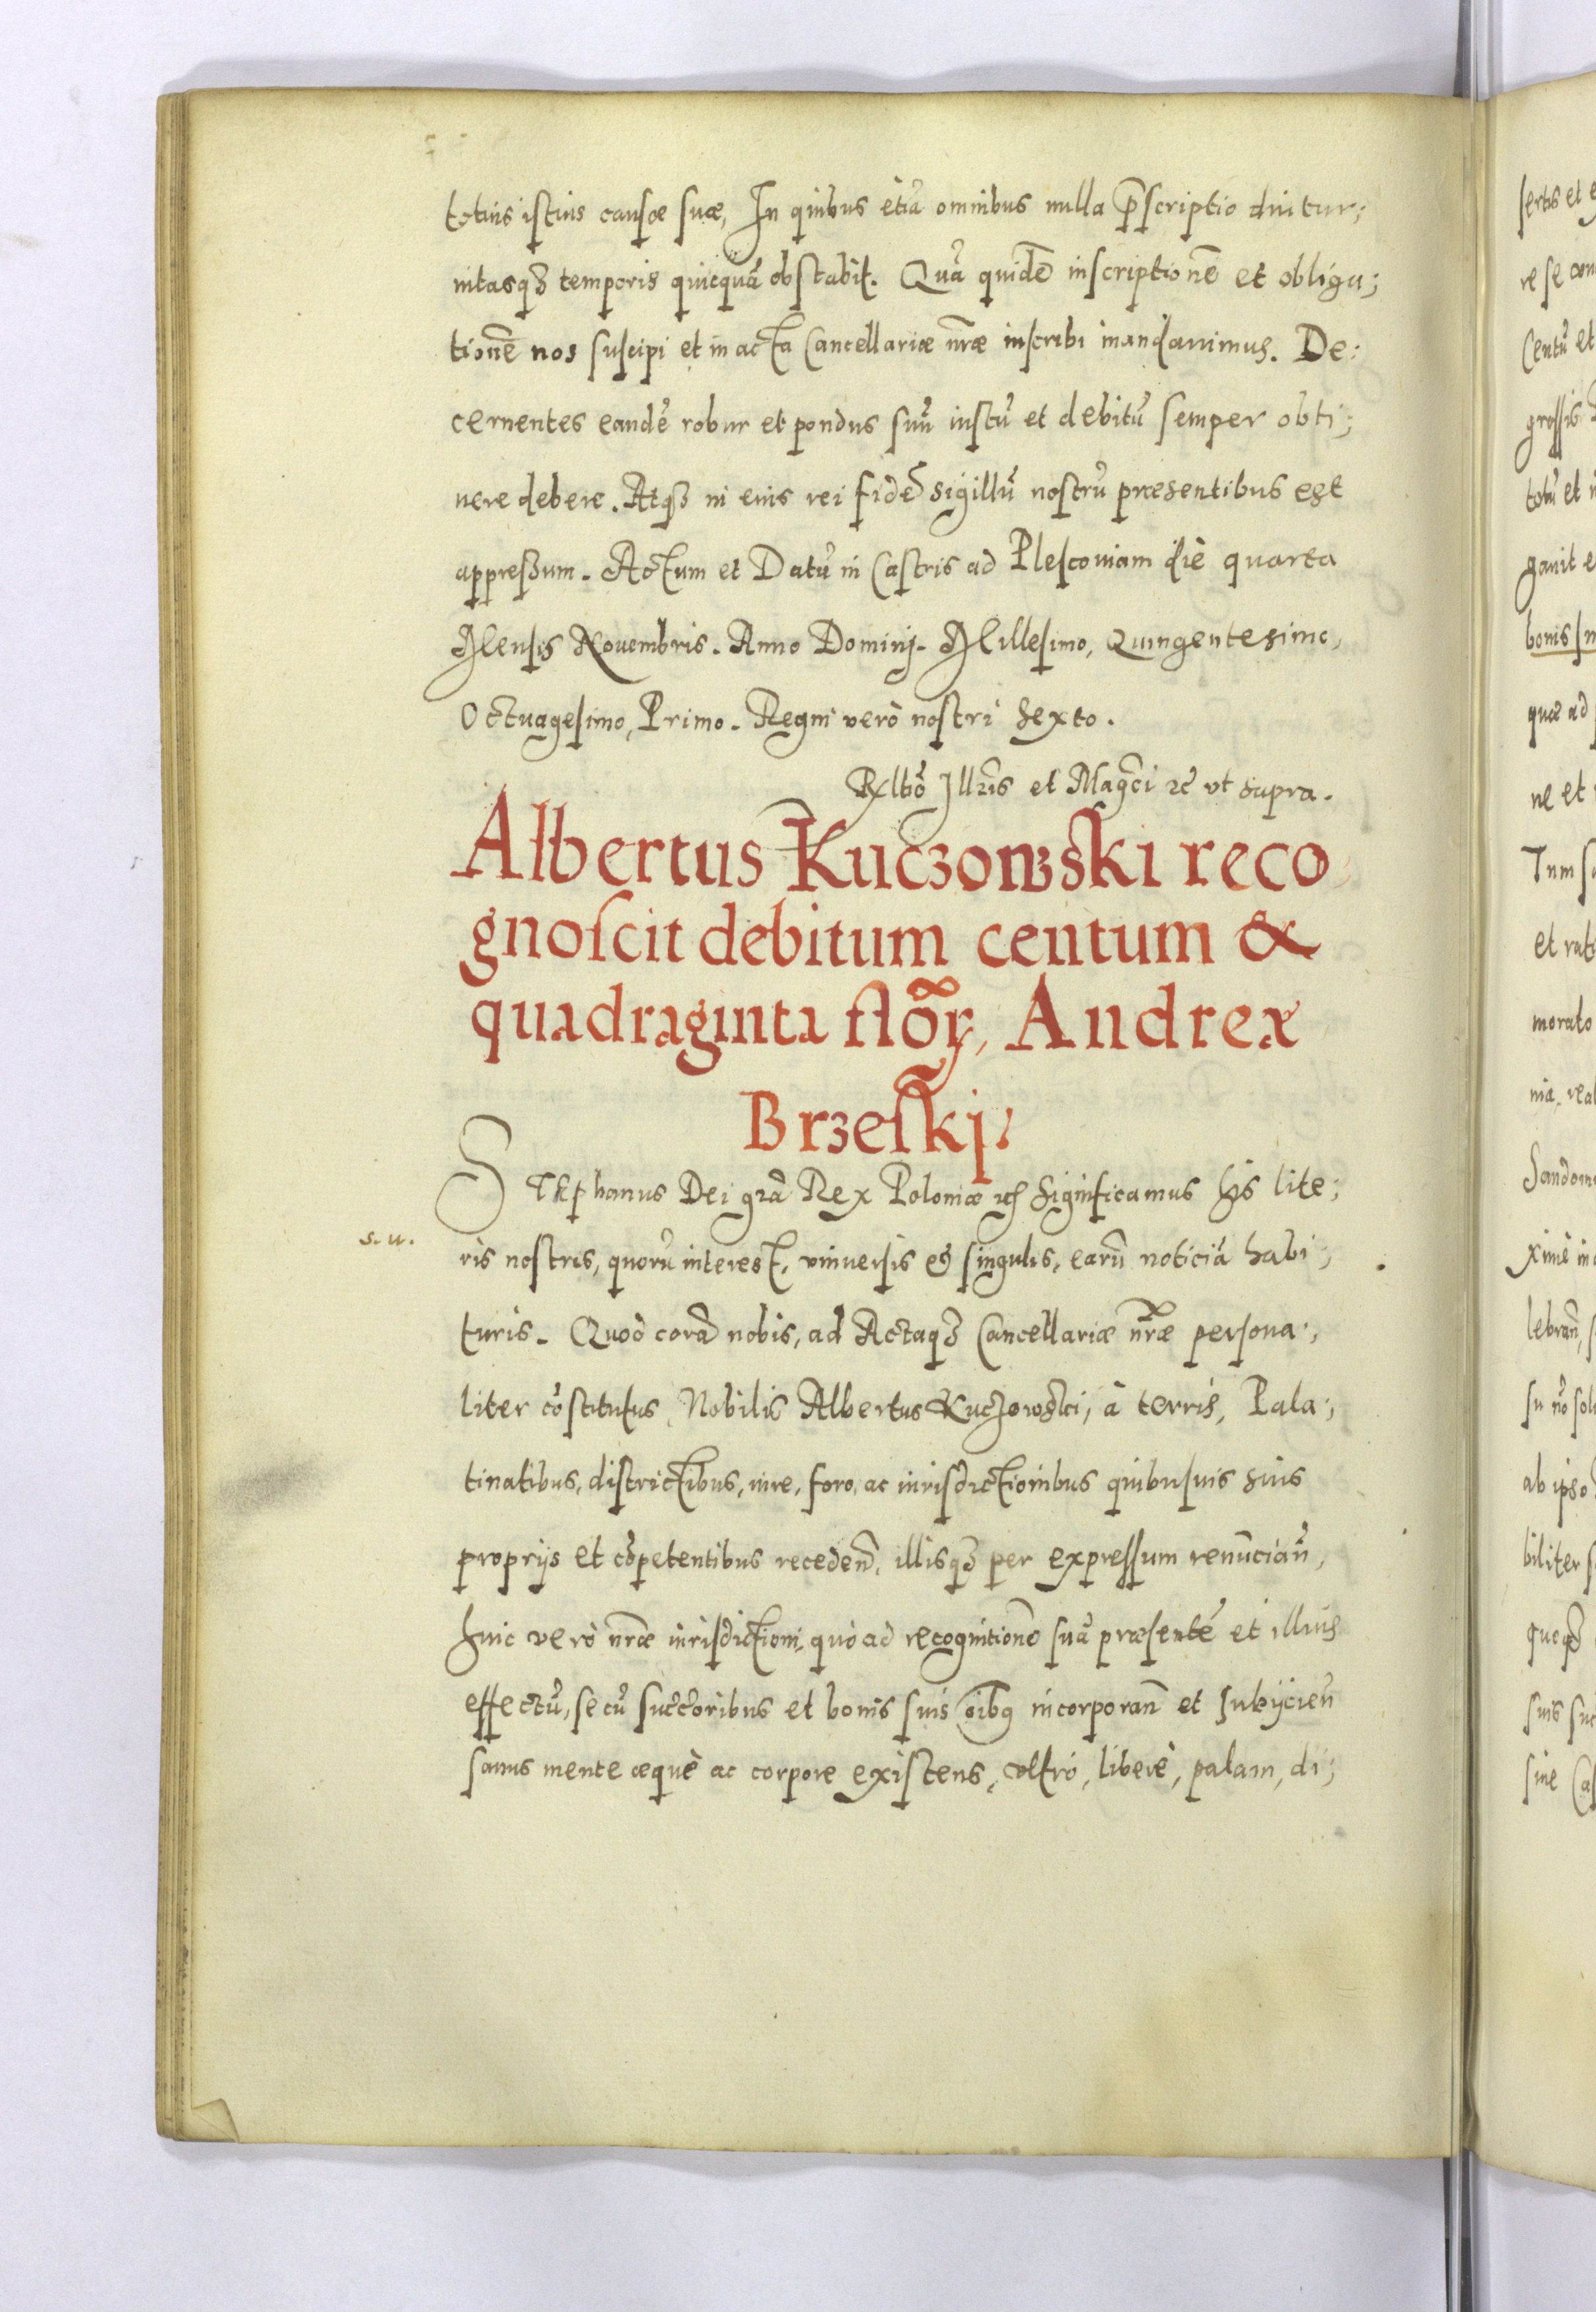 totius istius causæ suæ, In quibus etiā omnibus nulla p̄scriptio diutur;
nitasq3 temporis quicquā obstabit. Quā quidē inscriptionē et obliga;
tionē nos suscipi et in acta Cancellariæ nr̄æ inscribi mandauimus. De:
cernentes eandē robur et pondus suū iustū et debitū semper obti;
nere debere. Atq3 in eius rei fidē sigillū nostrū præsentibus est
appressum. Actum et Datū in Castris ad Plescouiam diè quarta
Mensis Nouembris. Anno Dominj. Millesimo, Quingentesimo,
Octuagesimo, Primo. Regni verò nostri sexto.
Rx̄lbō Illr̄is et Magc̄i ꝛc̄ vt supra.
Albertus Kuczowski reco
gnoscit debitum centum &
quadraginta flōꝝ, Andreæ
Brzeskj.
Stephanus Dei gr̄a Rex Poloniæ ꝛcꝫ Significamus his lite;
s. u.
ris nostris, quorū interest, vniuersis et singulis, earū noticiā habi;
turis. Quod corā nobis, ad Actaq3 Cancellariæ nr̄æ persona;
liter cōstitutus, Nobilis Albertus Kuczowski, à terris, Pala;
tinatibus, districtibus, iure, foro, ac iurisdictionibus quibusuis suis
proprijs et cōpetentibus recedeñ, illisq3 per expressum renunciañ,
huic verò nr̄æ iurisdictioni, quò ad recognitionē suā præsentē et illius
effectū, se cū succ̄oribus et bonis suis oībꝰ incorporañ et Subijcieñ
sanus mente æquè ac corpore existens, vltrò, liberè, palam, di;